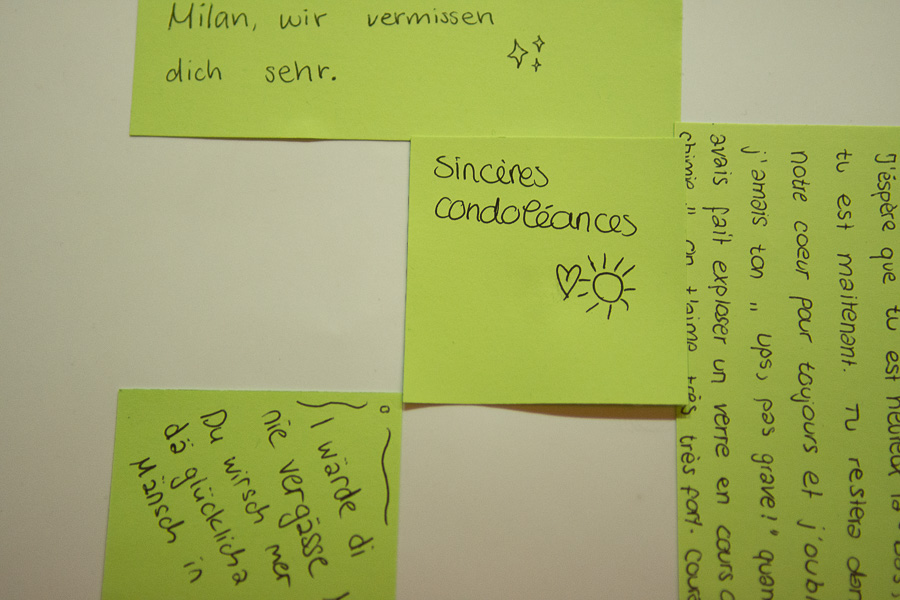 Milan, wir vermissen
dich sehr.
Sincères
condoléances
j'éspère que tu est heureux
tu est maitenant. Tu restera
notre coeur pour toujours et j'oubl
j'amais ton „ ups, pas grave!" quan
avais fait exploser un verre en cours
chimie " on t'aime très très fort.
I wärde di
nie vergässe
Du wirsch mer
dä glücklicha
Mänsch in